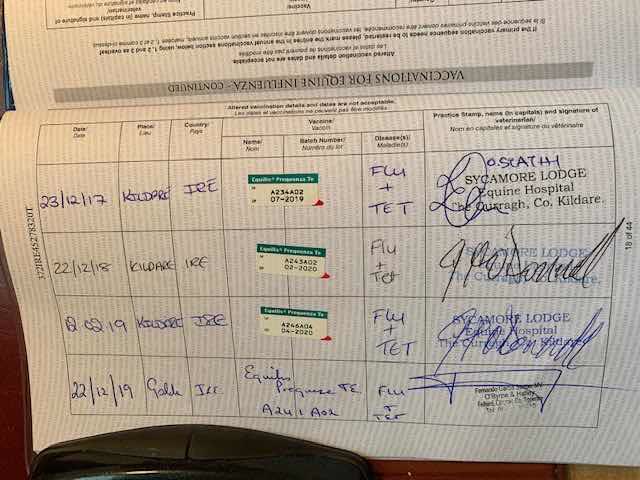 Practice Stamp, name (in capitals) and signature of
veterinarian/
Vaccine
Country/
If the primary vaccination sequence needs to be restarted, please mark the entries in the annual vaccinations section below, using 1, 2 and 3 as overleaf
Altered vaccination details and dates are not acceptable.
Les dates et vaccinations ne peuvent pas être modifiés
VACCINATIONS FOR EQUINE INFLUENZA - CONTINUED
Altered vaccination details and dates are not acceptable.
Les dates et vaccinations ne peuvent pas être modifiés.
Date/
Date
Place/
Lieu
Country/
Pays
Vaccine/
Vaccin
Name/
Nom
Batch Number/
Numéro du lot
Disease(s)/
Maladie(s)
Practice Stamp, name (in capitals) and signature of
veterinarian/
Nom en capitales et signature du vétérinaire
23/12/17 KILDARE IRE
Equilis® Prequenza Te
A234A02
07-2019
FLU
+
TET
SYCAMORE LODGE
Equine Hospital
The Curragh, Co. Kildare.
22/12/18 KILDARE IRE
Equilis® Prequenza Te
A243A02
02-2020
Flu
+
Tet
SYCAMORE LODGE
The Curragh, Co. Kildare.
12.02.19 KILDARE IRE
Equilis® Prequenza Te
A246A04
04-2020
FLU
+
TET
SYCAMORE LODGE
Equine Hospital
The Curragh, Co. Kildare.
22/12/19
Equilis
TE
A241A02
FLU
+
TET
O'Byrne & Halley
372IRE45278320T
18 of 44